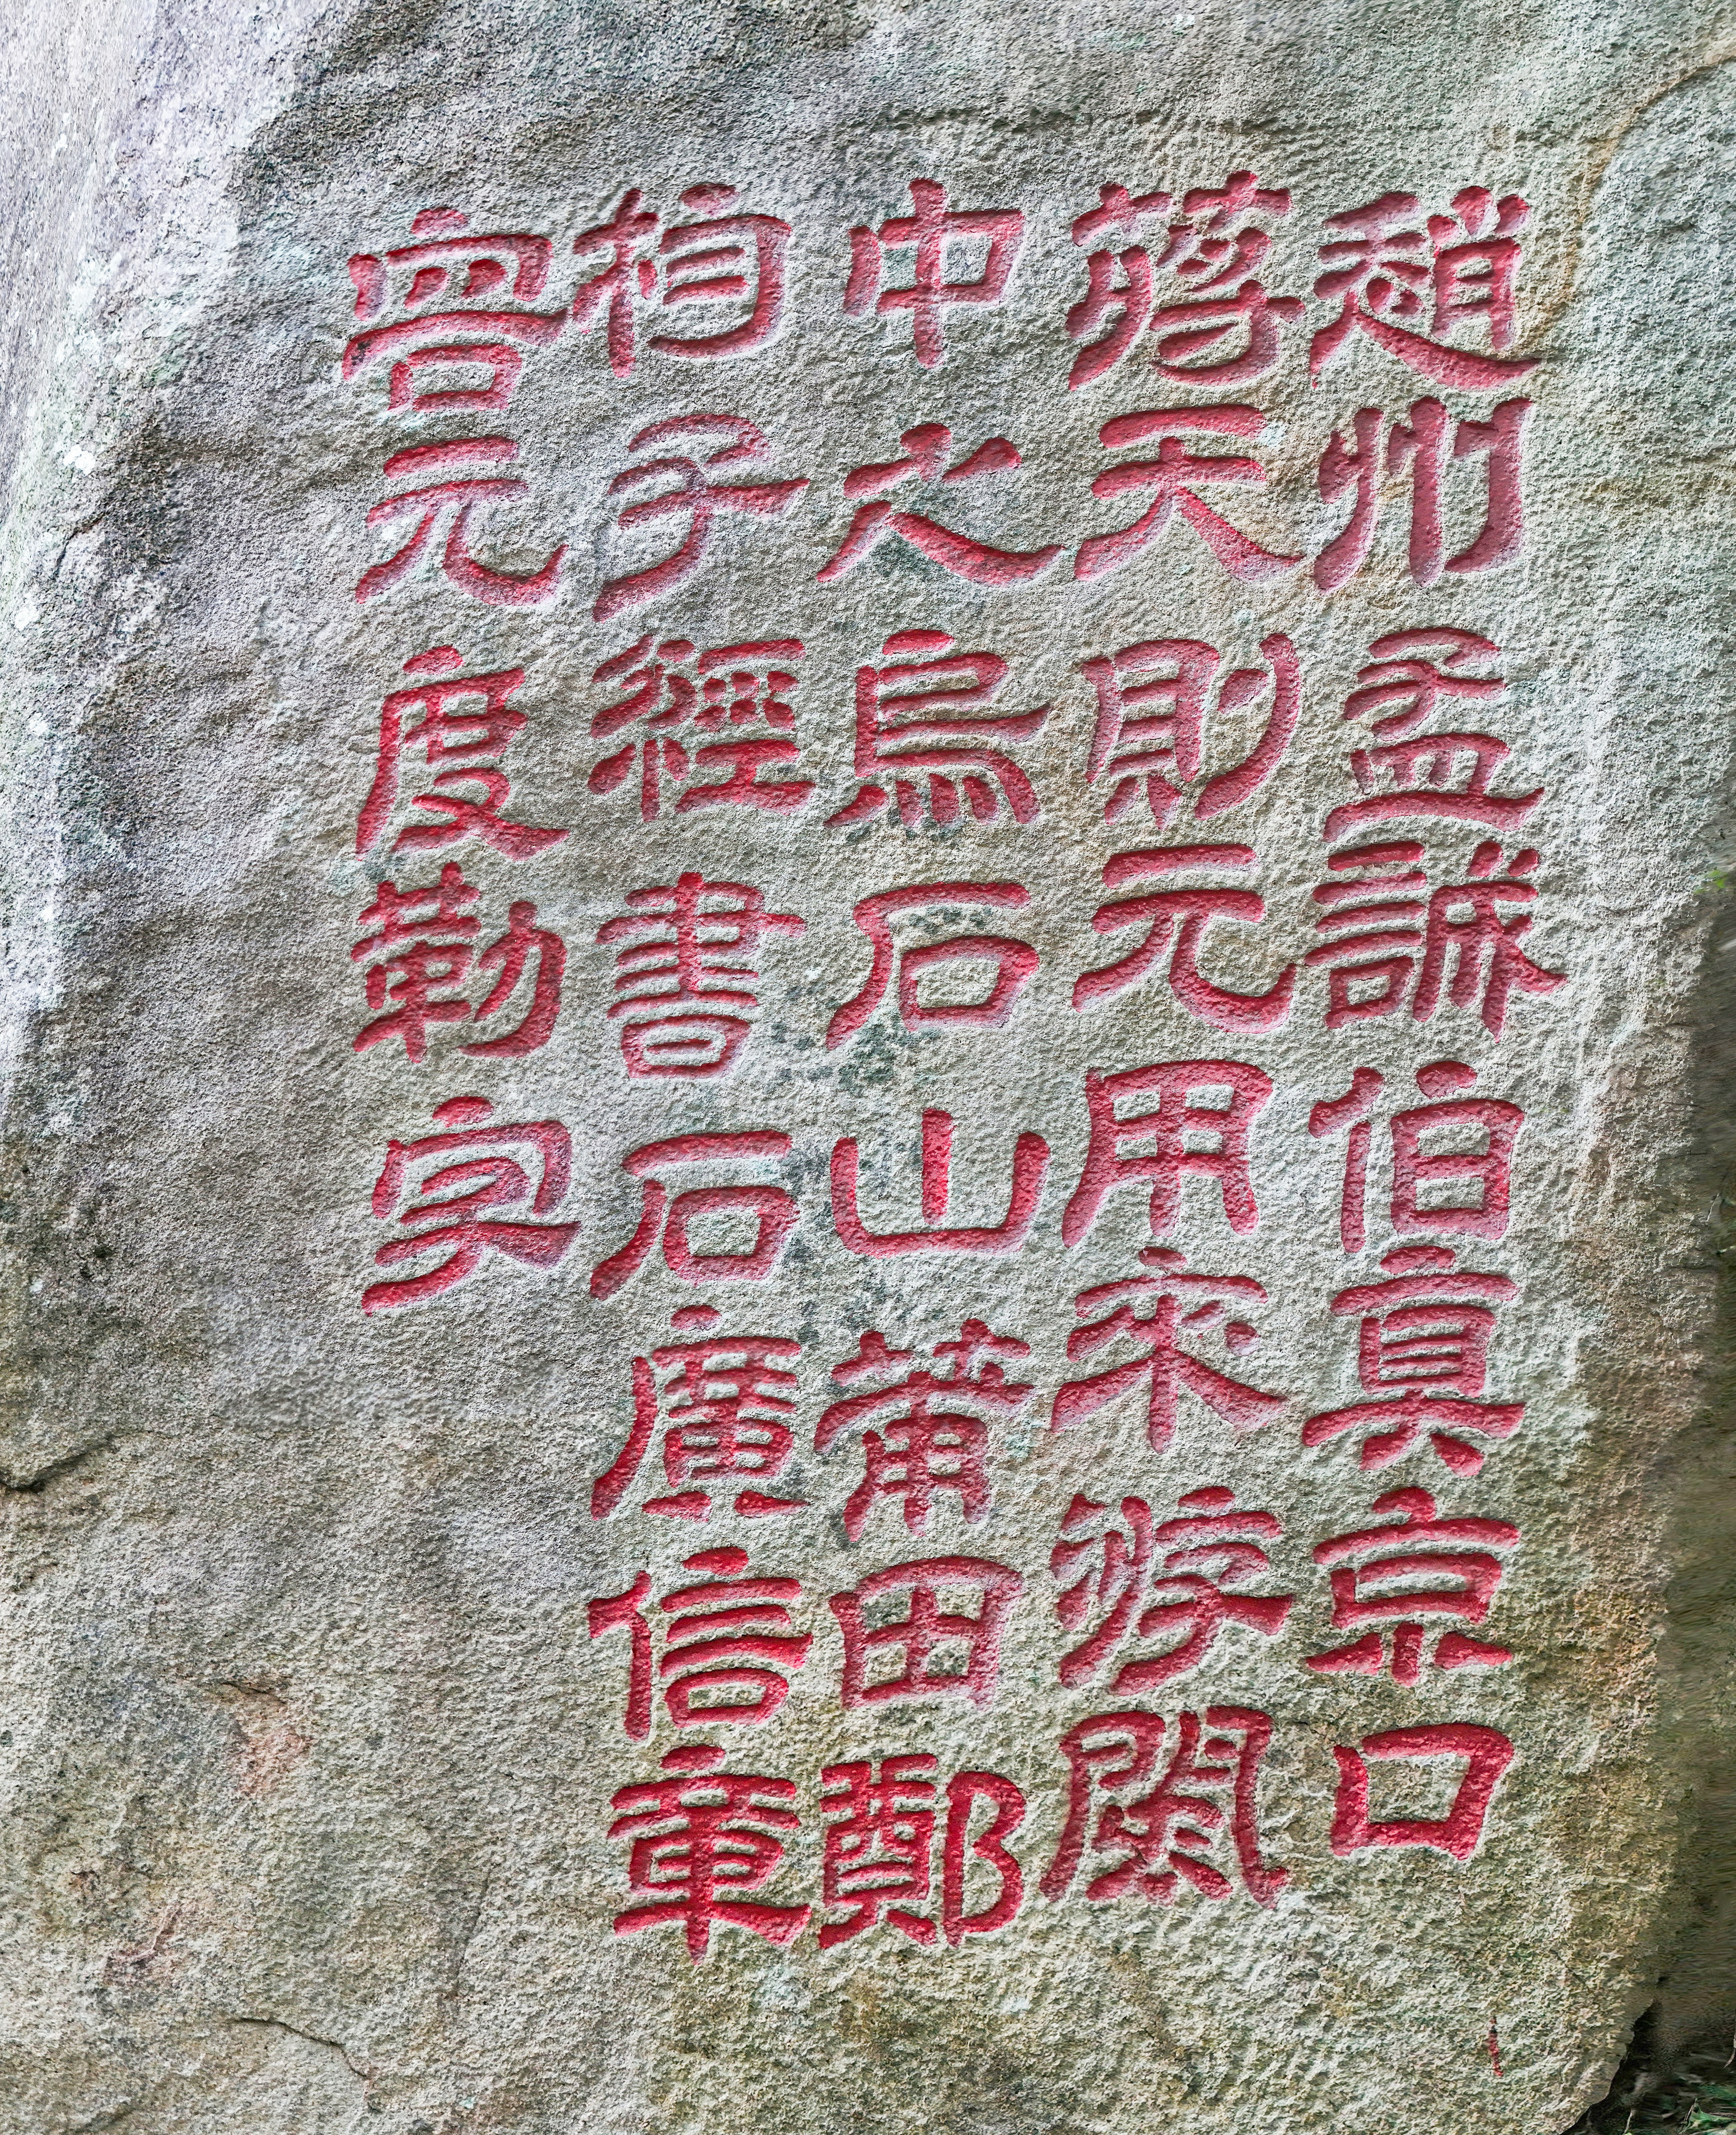 趙州孟誠伯眞京口
蔣天則元用來游閩
中之烏石山莆田鄭
枃子經書石廣信章
容元度勒字